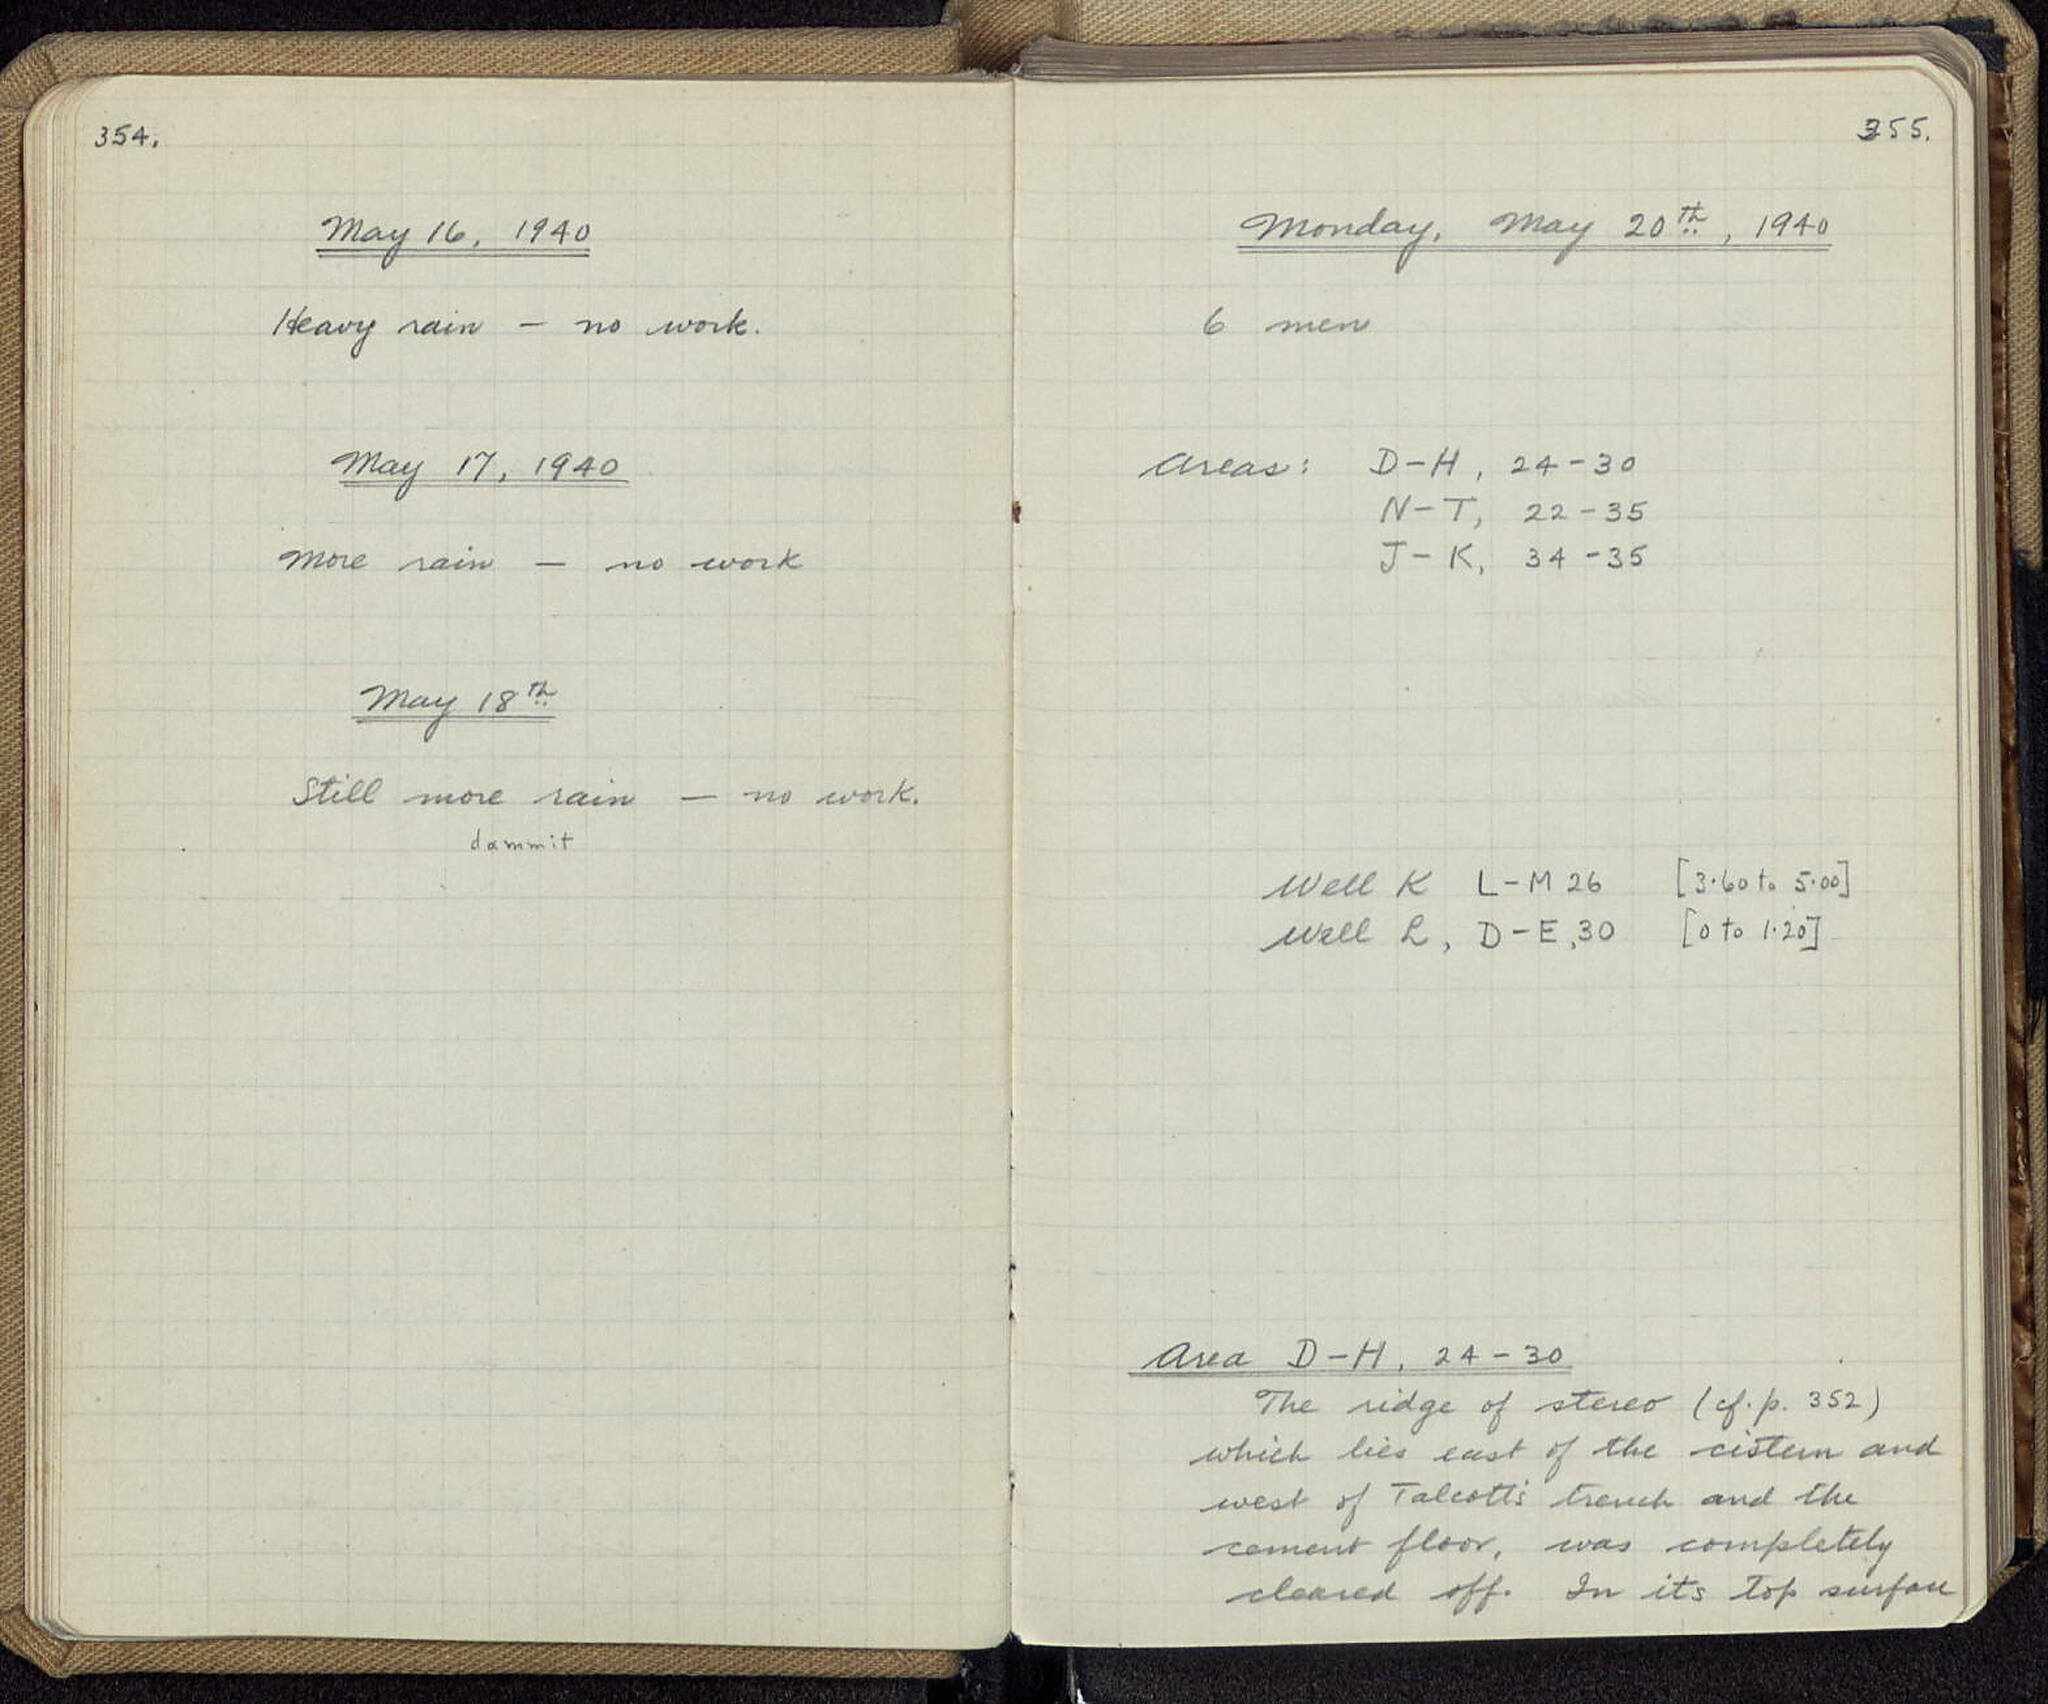 354.
May 16, 1940
Heavy rain – no work.
May 17, 1940
More rain – no work
May 18th
Still more rain – no work.
dammit
355.
Monday, May 20th, 1940
6 men
Areas: D–H, 24–30
N–T, 22–35
J–K, 34–35
Well K L–M 26 [3.60 to 5.00]
Well L, D–E, 30 [0 to 1.20]
Area D–H, 24–30
The ridge of stereo (cf. p. 352)
which lies east of the cistern and
west of Talcott's trench and the
cement floor, was completely
cleared off. In its top surface